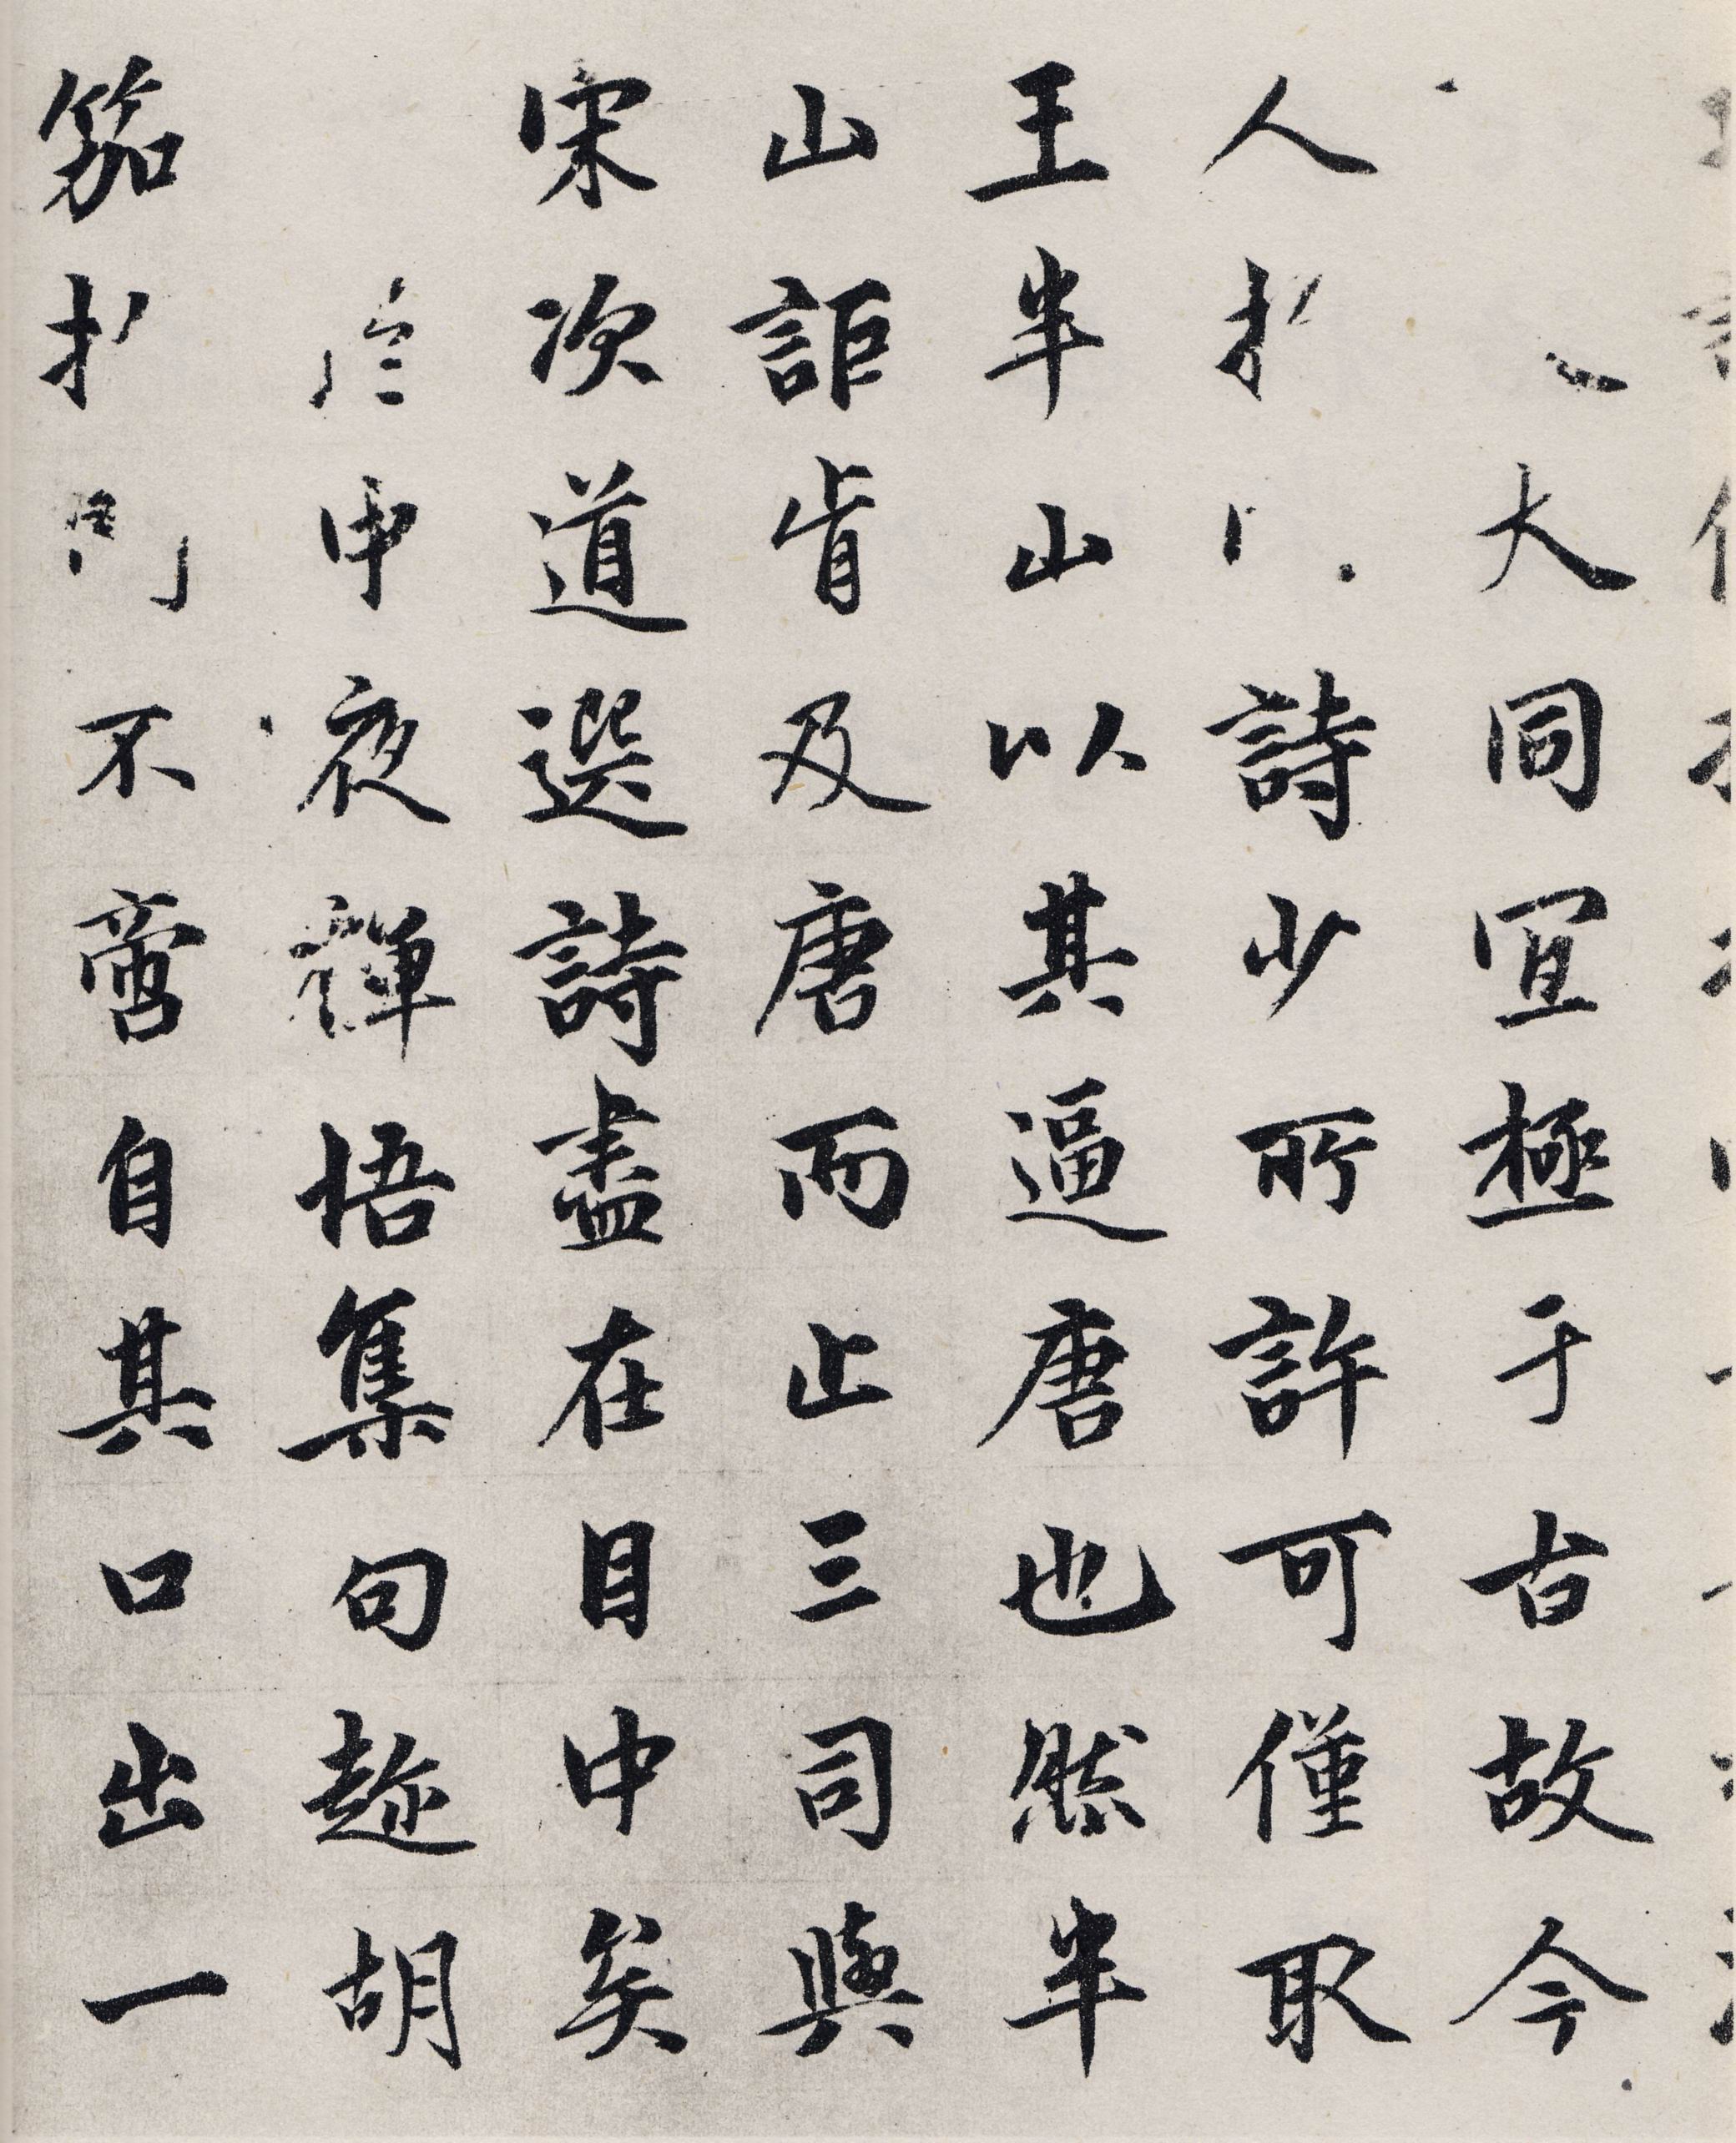 大同宜極于古故今
人於詩少所許可僅取
王半山以其逼唐也然半
山詎肯及唐而止三司與
宋次道選詩盡在目中矣
中夜禪悟集句趂胡
笳於不啻自其口出一